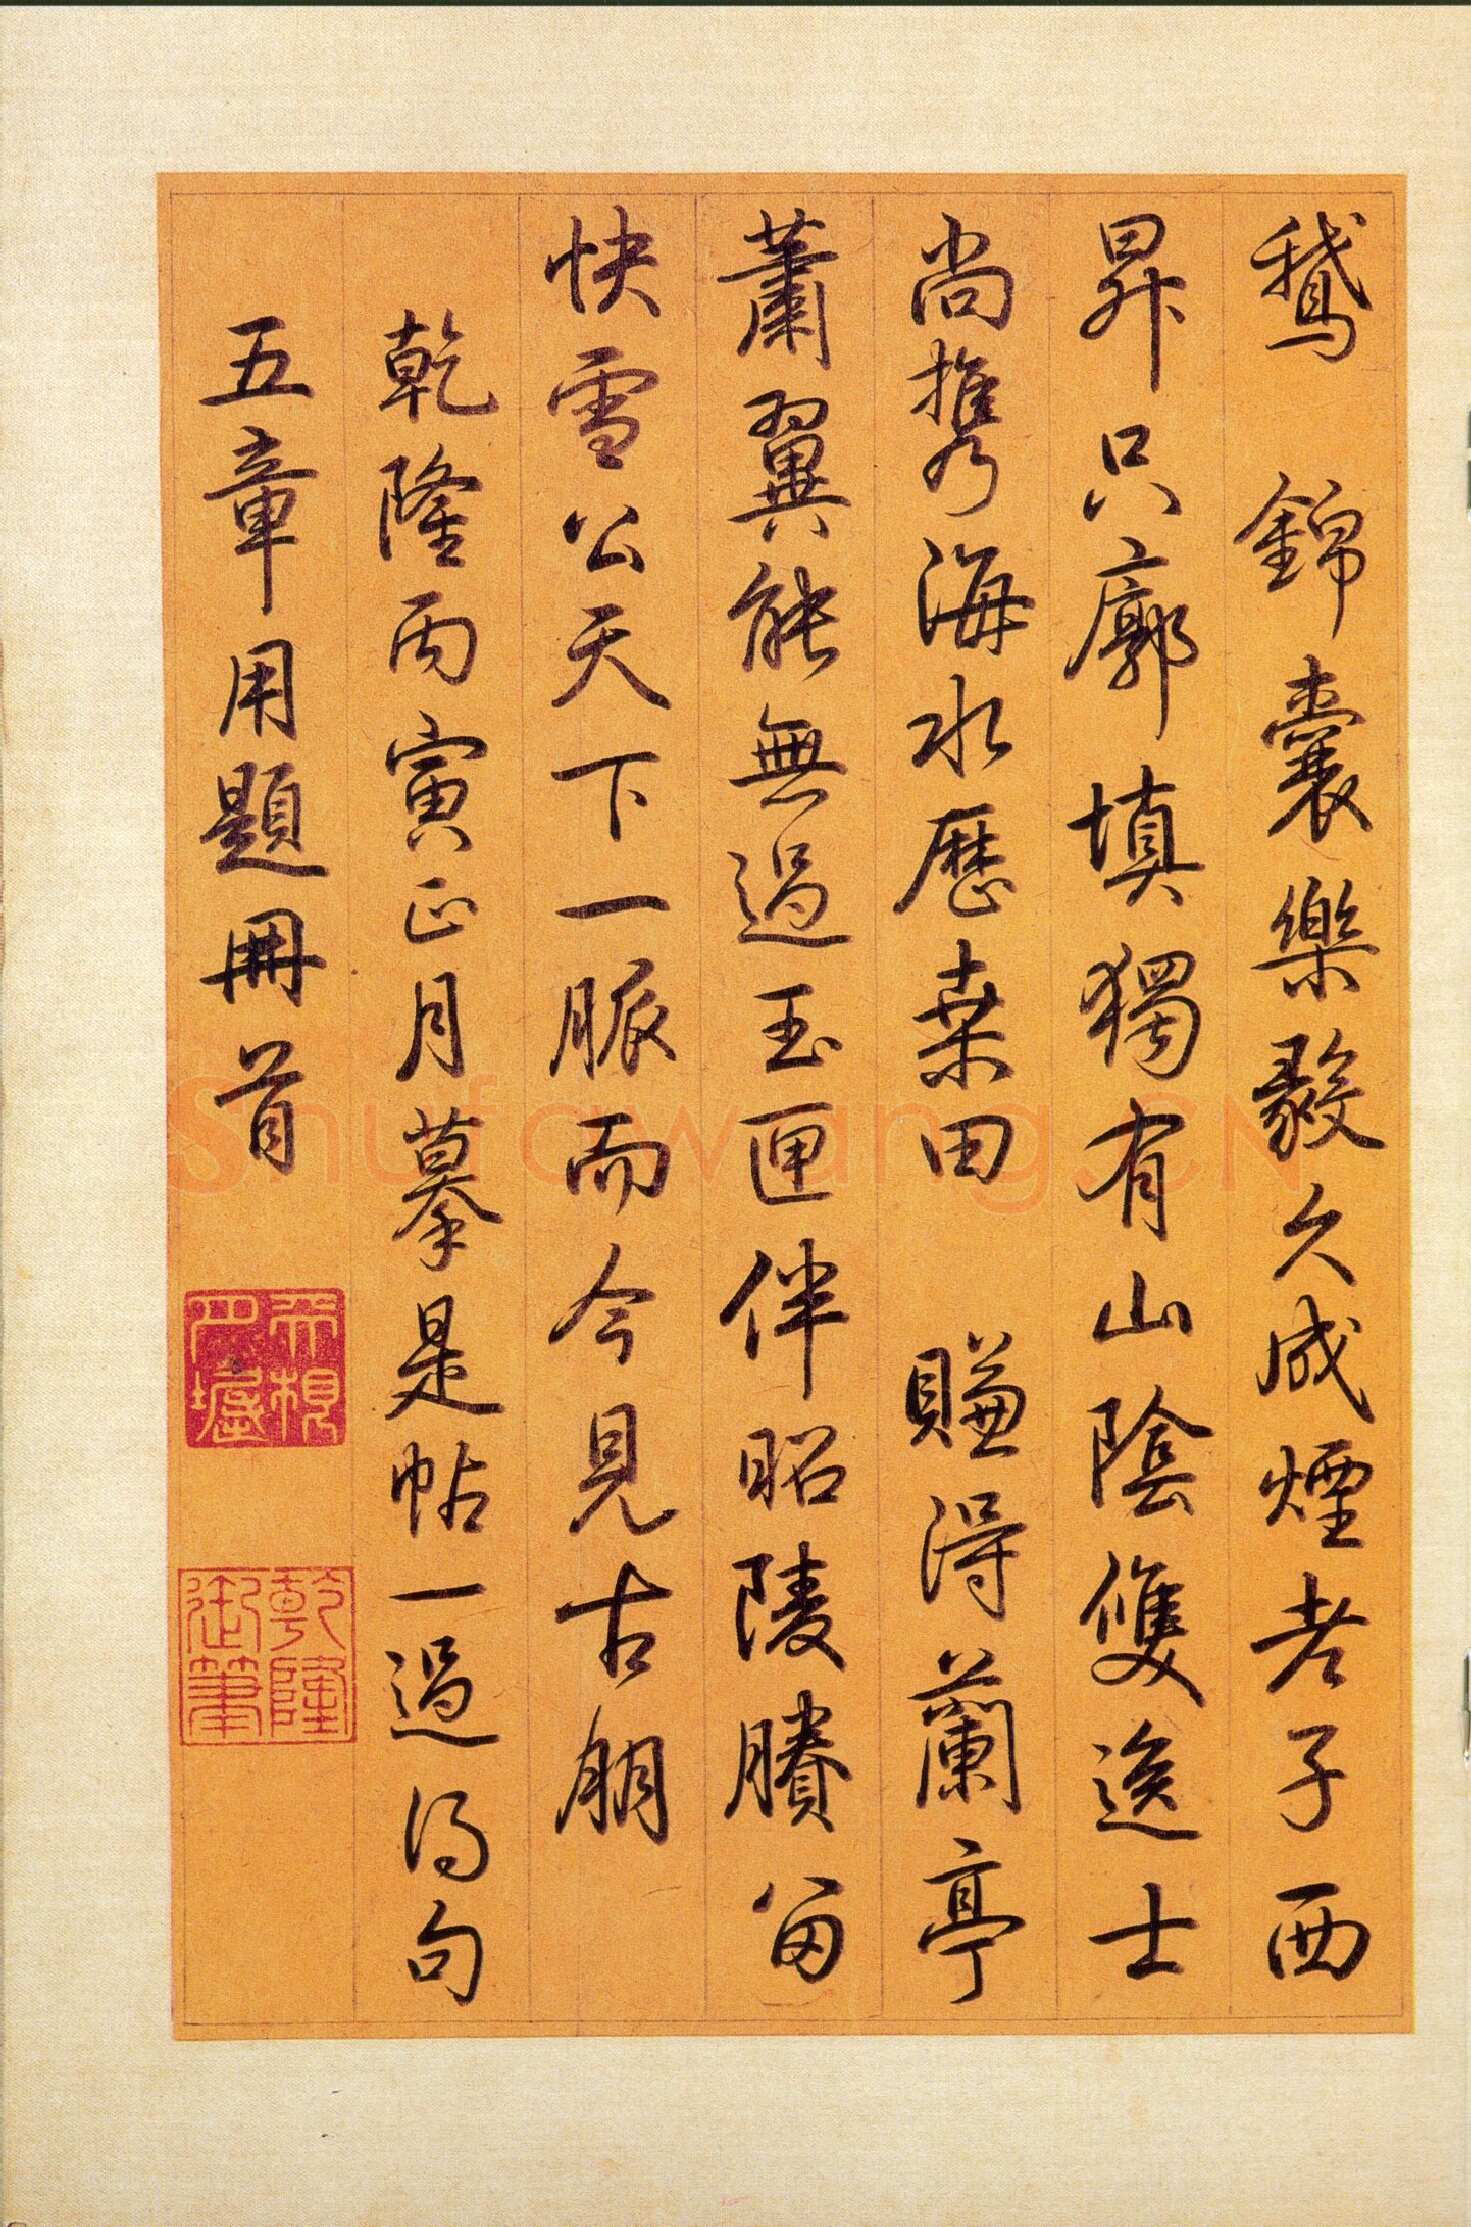 鵝 錦囊樂毅久成煙老子西
昇只廓填獨有山陰雙逸士
尚携海水歷桒田 賺得蘭亭
蕭翼能無過玉匣伴昭陵賸留
快雪公天下一脈而今見古朋
乾隆丙寅正月摹是帖一過得句
五章用題冊首
乾隆御筆
Shufawang.CN